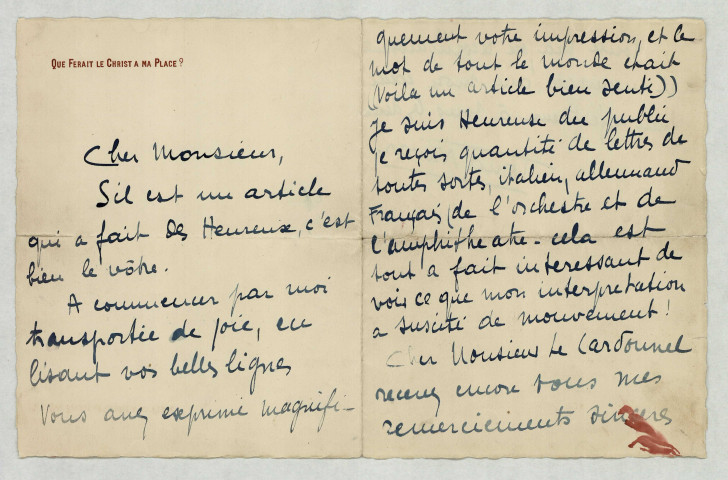 QUE FERAIT LE CHRIST A MA PLACE?
Cher Monsieur,
S'il est un article
qui a fait des Heureux, c'est
bien le vôtre.
A commencer par moi
transportée de joie, en
lisant vos belles lignes
Vous avez exprimé magnifi-
quement votre impression, et le
mot de tout le monde etait
(Voila un article bien senti))
je suis Heureuse du publié
je reçois quantité de lettres de
toutes sortes, italien, allemand
Français, de l'orchestre et de
l'amphitheatre - cela est
tout a fait interessant de
voir ce que mon interpretation
a suscité de mouvement!
Cher Monsieur Le Cardonnel
recevez encore tous mes
remerciements sinceres